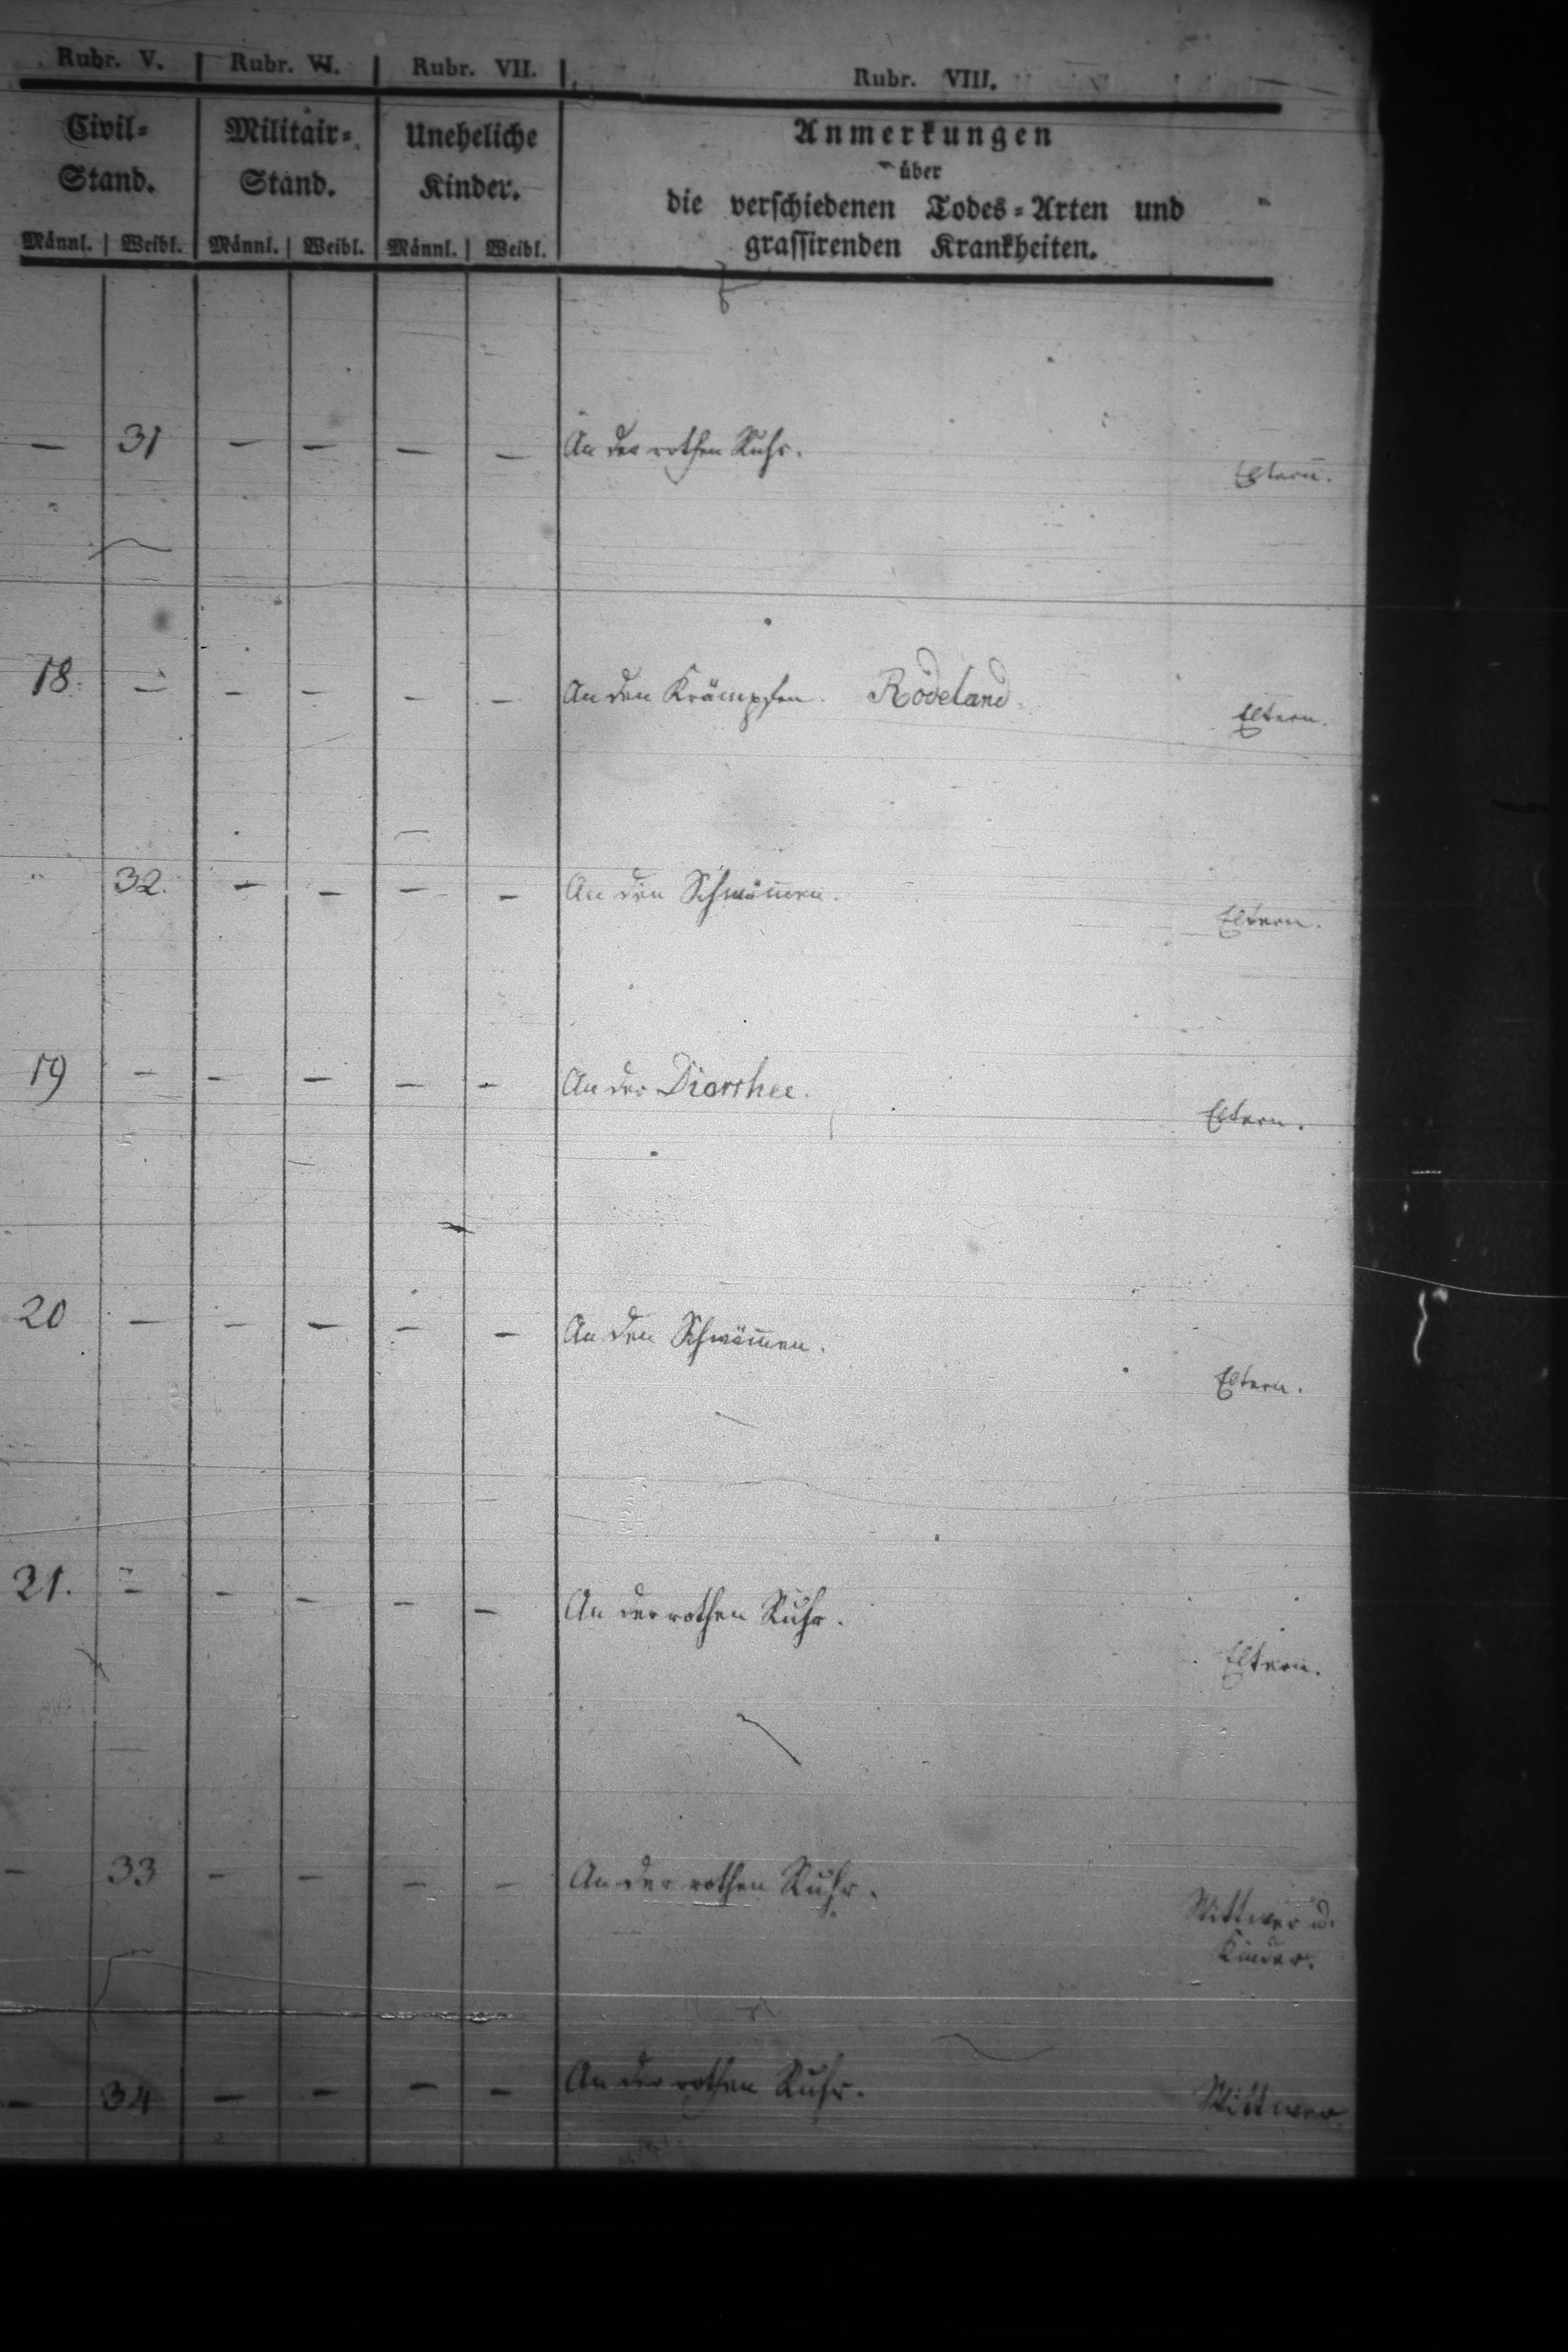 Rubr. V. Rubr. VI. Rubr. VII. Rubr. VIII.
Civil= Militair= Uneheliche Anmerkungen
Stand. Stand. Kinder. über
die verschiedenen Todes=Arten und
Männl. Weibl. Männl. Weibl. Männl. Weibl. grassirenden Krankheiten.
– 31 – – – – An der rothen Ruhr.
Eltern.
18. – – – – – An den Krämpfen. Rodeland.
Eltern.
32. – – – – An den Schwäm̄en.
Eltern.
19 – – – – – An der Diarrhee.
Eltern.
20 – – – – – An den Schwäm̄en.
Eltern.
21. – – – – – An der rothen Ruhr.
Eltern.
– 33 – – – – An der rothen Ruhr.
Wittwer u.
Kinder.
– 34 – – – – An der rothen Ruhr.
Wittwer